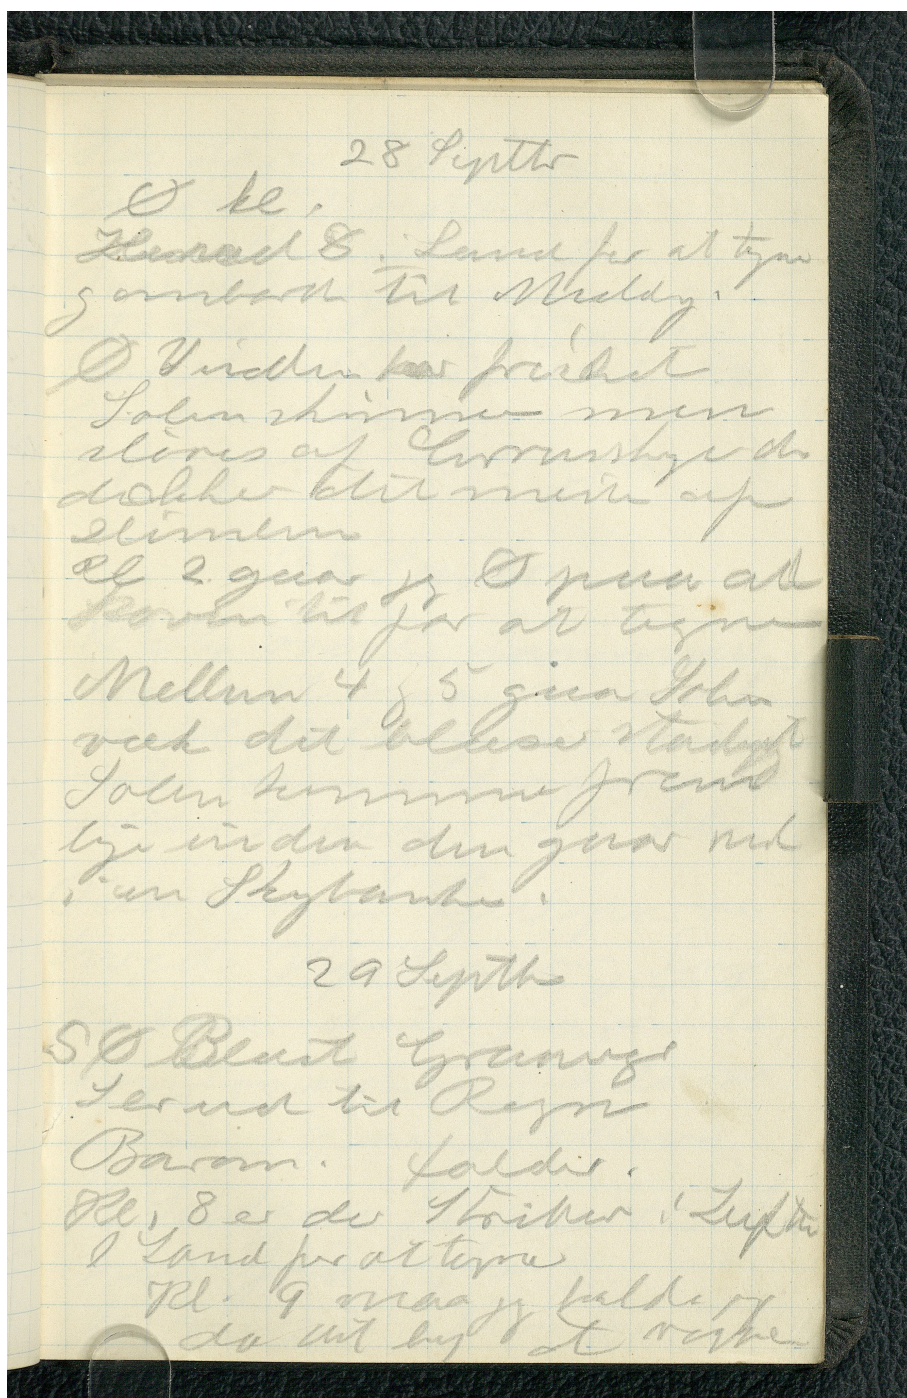 28 Septbr
Ø kl.
8 i Land for at tegne
ombord til Middg.
Ø Vinden har frisket
Solen skinner men
sløres af Cirrusskye de
dækker det meste af
Himlen
Kl 2 gaar jeg Ø paa at
til for at tegne
Mellem 4 og 5 gaar Solen
væk det blæser stadigt
Solen kommer frem
lige inden den gaar ned
i en Skybanke.
29 Septbr
SØ Blæst Graaveir
Ser ud til Regn
Barom. falder.
Kl. 8 er der Striber i Luften
I Land for at tegne
Kl. 9 maa jeg
da det at regne